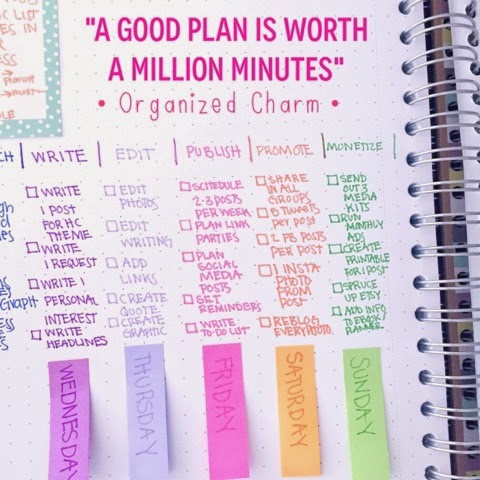 "A GOOD PLAN IS WORTH
A MILLION MINUTES"
• Organized Charm •
LIST
IN
WRITE
EDIT
PUBLISH
PROMOTE
MONETIZE
WRITE
1 POST
FOR HC
THEME
WRITE
1 REQUEST
WRITE 1
PERSONAL
INTEREST
WRITE
HEADLINES
EDIT
PHOTOS
EDIT
WRITING
ADD
LINKS
CREATE
QUOTE
CREATE
GRAPHIC
SCHEDULE
2-3 POSTS
PER WEEK
PLAN LINK
PARTIES
PLAN
SOCIAL
MEDIA
POSTS
SET
REMINDERS
WRITE
TO-DO LIST
SHARE
IN ALL
GROUPS
TWEETS
PER POST
2 FB POSTS
PER POST
1 INSTA
PHOTO
FROM
POST
REBLOG
EVERY PHOTO
SEND
OUT 3
MEDIA
KITS
RUN
MONTHLY
ADS
CREATE
PRINTABLE
FOR 1 POST
SPRUCE
UP ETSY
ADD INFO
TO
PLANNER
WEDNESDAY
THURSDAY
FRIDAY
SATURDAY
SUNDAY